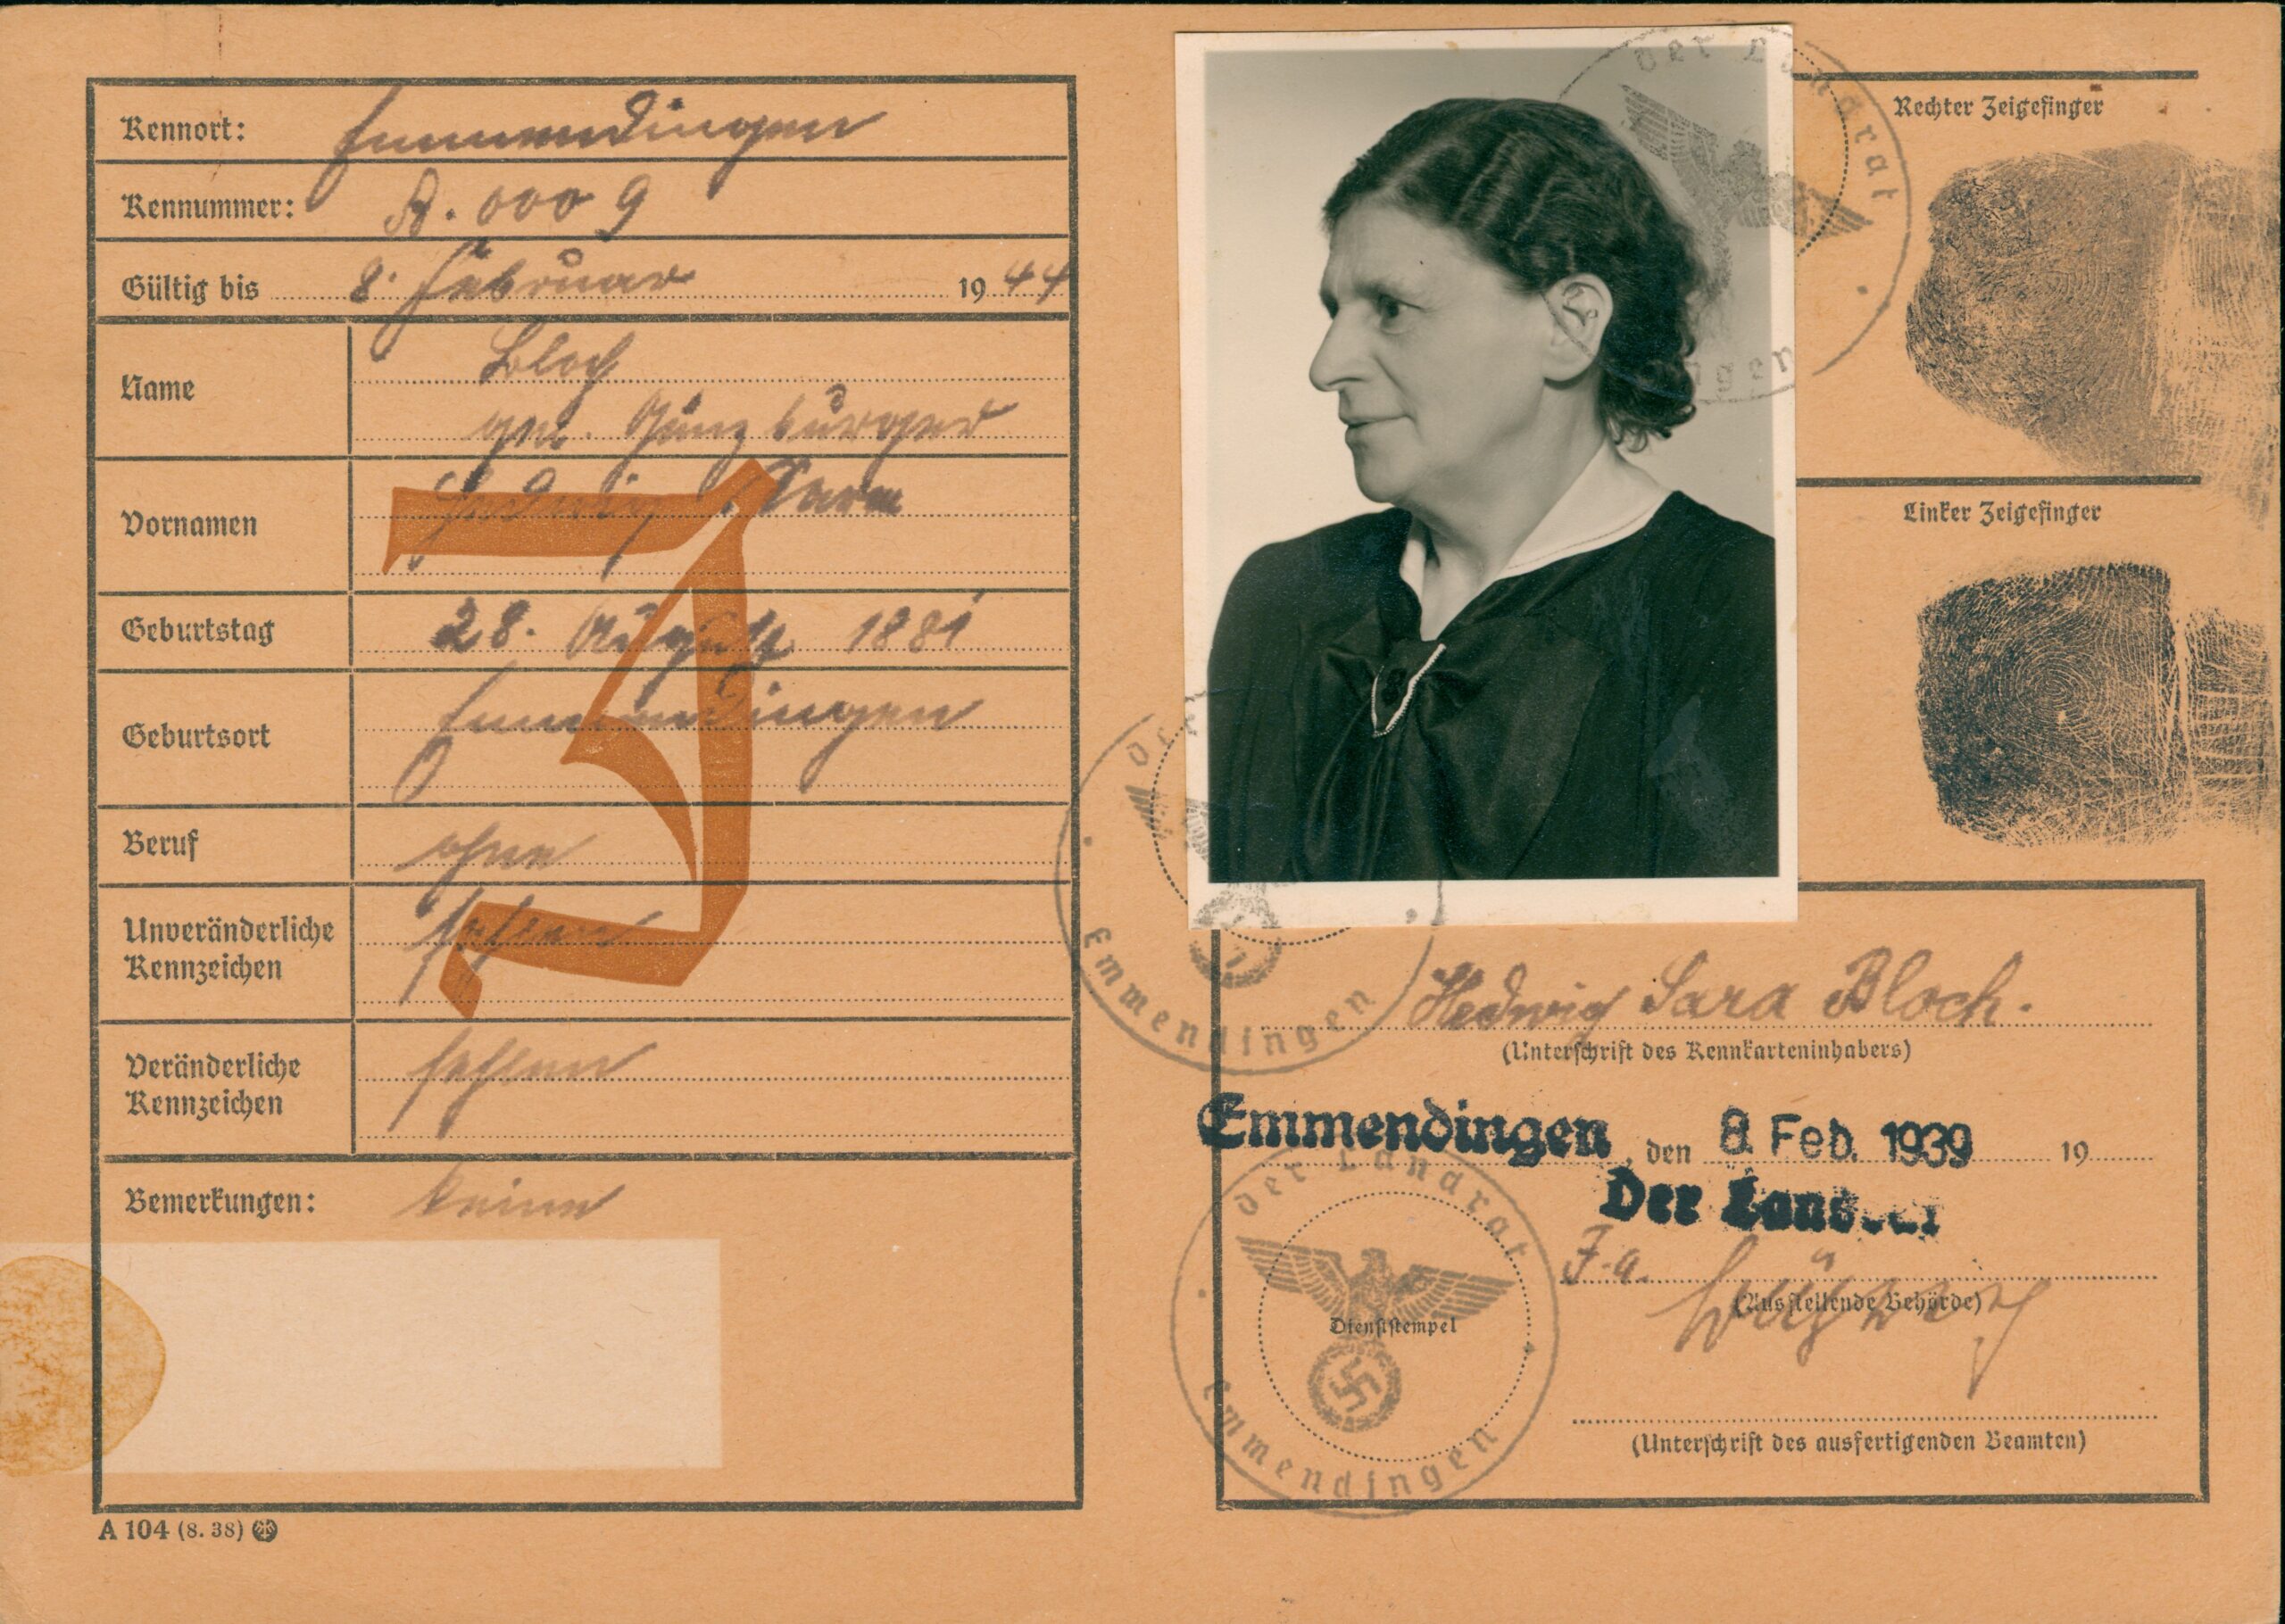 Kennort: Emmendingen
Kennummer: A. 0009
Gültig bis 8. Februar 1944
Name Bloch
geb. Günzburger
Vornamen Hedwig Sara
Geburtstag 28. August 1881
Geburtsort Emmendingen
Beruf ohne
Unveränderliche Kennzeichen fehlen
Veränderliche Kennzeichen fehlen
Bemerkungen: keine
A 104 (8. 38)
J
Der Landrat
Emmendingen
Rechter Zeigefinger
Linker Zeigefinger
Hedwig Sara Bloch.
(Unterschrift des Kennkarteninhabers)
Emmendingen, den 8. Feb. 1939 19
Der Landrat
J. A.
(Ausstellende Behörde)
Der Landrat
Dienststempel
Emmendingen
(Unterschrift des ausfertigenden Beamten)